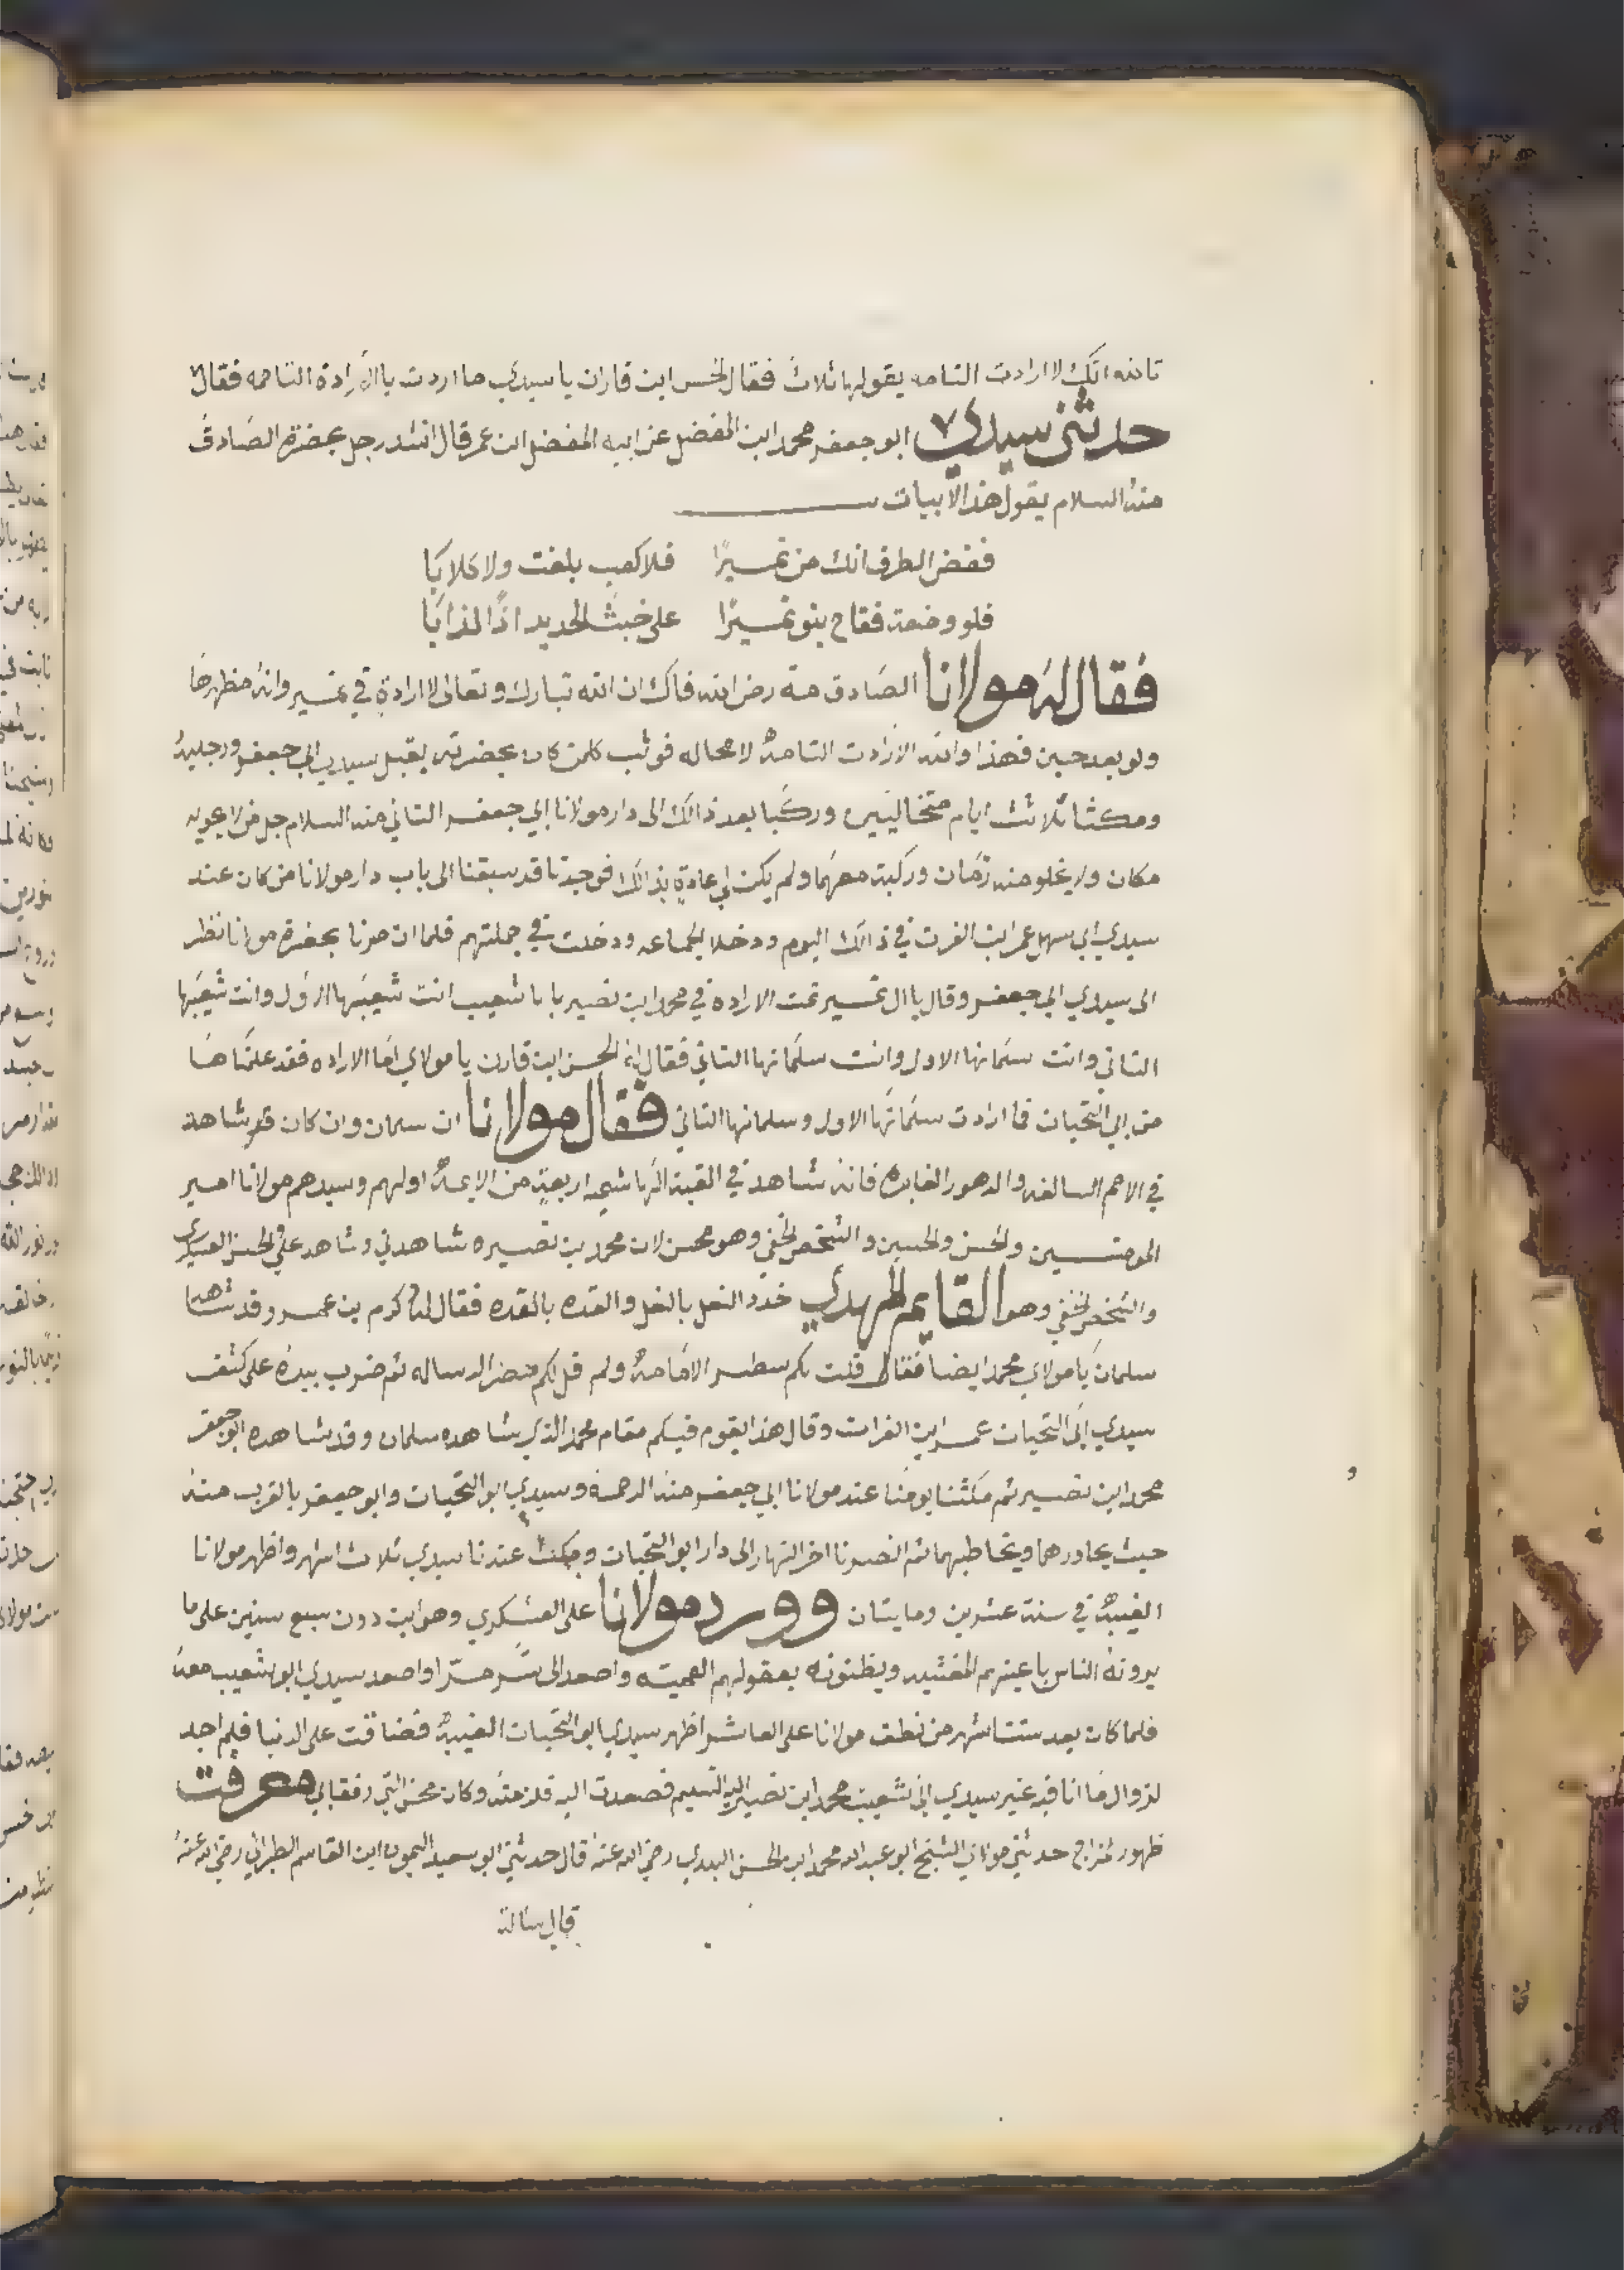 تالله انك لا ارادت التامه يقولها ثلاث فقال الحسن ابن قاران يا سيدي ما اردت بالارادة التامه فقال
حدثني سيدي ابو جعفر محمد ابن المفضل عن ابيه المفضل ابن عمر قال انشد رجل بحضرة الصادق
منه السلام يقول هذ الابيات
فغض الطرف انك من نميرًا فلا كعب بلغت ولا كلابا
فلو وضعة فقاح بنو نميرًا على خبث الحديد اذًا لذابا
فقال له مولانا الصادق مه رض الله فاك ان الله تبارك وتعالى لا ارادةٍ في نمير وانه مظهرها
ولو بعد حين فهذا والله الارادت التامة لا محاله فوثب كلمن كان بحضرته يقبل سيدي ابي جعفر ورجليه
ومكثنا ثلاثت ايام وركبا بعد ذالك الى دار مولانا ابي جعفر الثاني منه السلام جل من لا يحويه
مكان ولا يخلو منه زمان وركبة معهما ولم يكن لي عادةٍ بذالك فوجدنا قد سبقنا الى باب دار مولانا من كان عند
سيدي ابي سهل عمر ابن الفرت في ذالك اليوم ودخلا الجماعه ودخلت في جملتهم فلما ان صرنا بحضرة مولانا نظر
الى سيدي ابي جعفر وقال يا ال نمير تمت الاراده في محمد ابن نصير يا با شعيب انت شعيبها الاول وانت شعيبها
الثاني وانت سلمانها الاول وانت سلمانها الثاني فقال له الحسن ابن قارن يا مولاي اما الاراده فقد علمناها
من ابي التحيات فما ارادت سلمانها الاول وسلمانها الثاني فقال مولانا ان سلمان وان كان قد شاهد
في الامم السالفه والدهور الغابره فانه شاهد في القبة الهاشميه اربعةٍ من الايمة اولهم وسيدهم مولانا امير
المومنين والحسن والحسين والشخص الخفي وهو محسن لان محمد بن نصيره شاهدني وشاهد علي والحسن العسكري
والشخص الخفي وهو القايم المهدي حذو النعل بالنعل والقده بالقده فقال له كرم بن عمر وقد شاهد
سلمان يا مولاي محمد ايضا فقال قلت لكم سطر الامامة ولم قل لكم الرساله ثم ضرب بيده على كتف
سيدي ابي التحيات عمر ابن الفرات وقال هذا يقوم فيكم مقام محمد الذي شاهده سلمان وقد شاهده ابو جعفر
محمد ابن نصير ثم مكثنا يومنا عند مولانا ابي جعفر منه الرحمة وسيدي ابو التحيات وابو جعفر بالقرب منه
حيث يحاورهما ويخاطبهما ثم انصرفنا اخر النهار الى دار ابو التحيات ومكث عندنا سيدي ثلاث اشهر واظهر مولانا
الغيبة في سنة عشرين ومايتان وورد مولانا على العسكري وهو ابن دون سبع سنين على ما
يرونه الناس باعينهم المغشيه ويظنونه بعقولهم العميه واصعد الى سر من را واصعد سيدي ابو شعيب معه
فلما كان بعد ستت اشهر من نطق مولانا على العاشر اظهر سيدي ابو التحيات الغيبة فضاقت على الدنيا فلم اجد
لزوال ما انا فيه غير سيدي ابي شعيب محمد ابن نصير اليه التسليم فصعدت اليه فلزمته وكان رفقا بي معرفت
ظهور حدثني مولاي الشيخ ابو عبد الله محمد ابن الحسن البلدي رضي الله عنه قال حدثني ابو سعيد الميمون ابن القاسم الطبراني رضي الله عنه
قال سالة